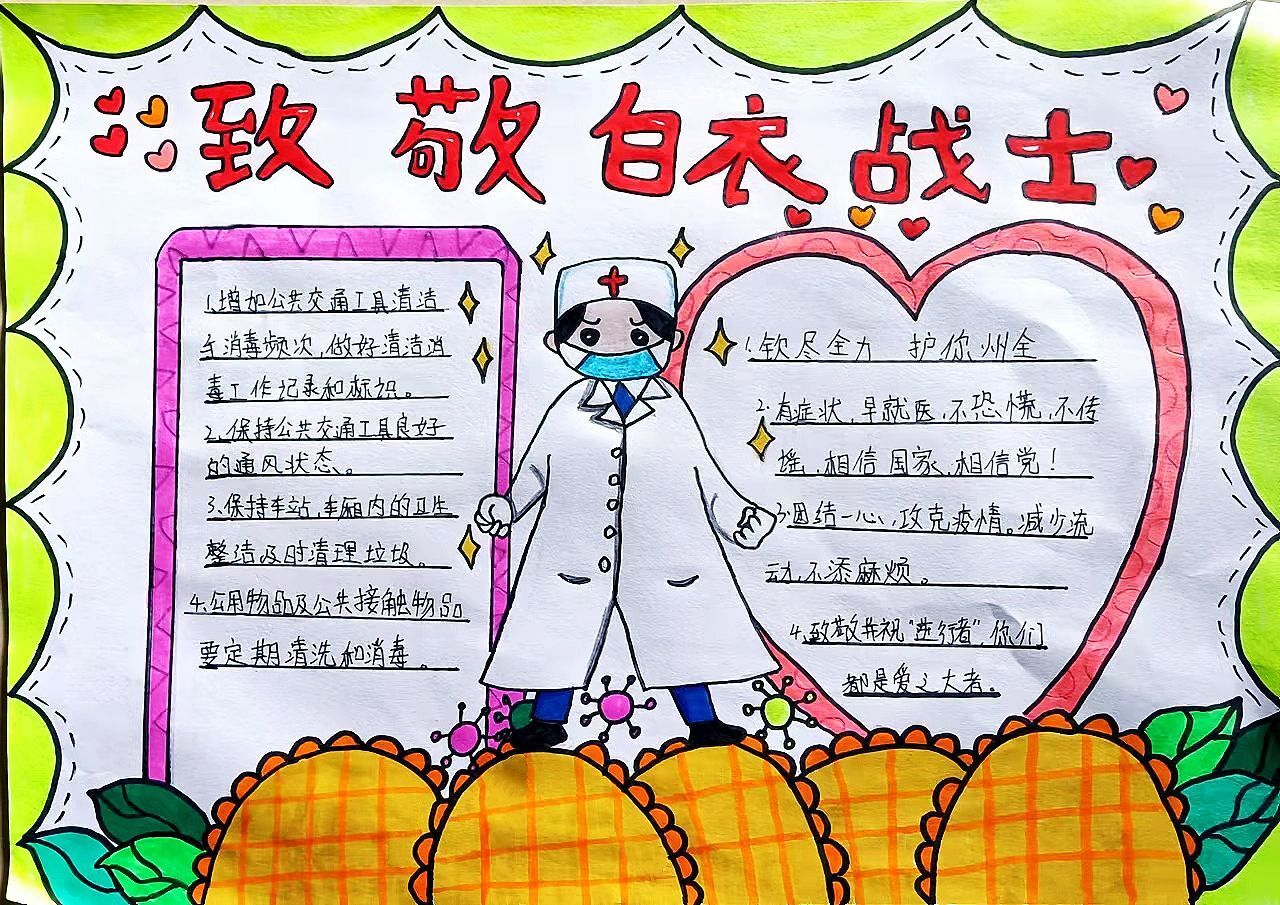 致敬白衣战士
1.增加公共交通工具清洁
与消毒频次,做好清洁消
毒工作记录和标识。
2.保持公共交通工具良好
的通风状态。
3.保持车站,车厢内的卫生
整洁及时清理垃圾。
4.公用物品及公共接触物品
要定期清洗和消毒。
1.钦尽全力 护你州全
2.有症状,早就医,不恐慌,不传
摇,相信国家,相信党!
3.团结一心,攻克疫情。减少流
动,不添麻烦。
4.致敬并祝“逆行者”,你们
都是爱之大者。